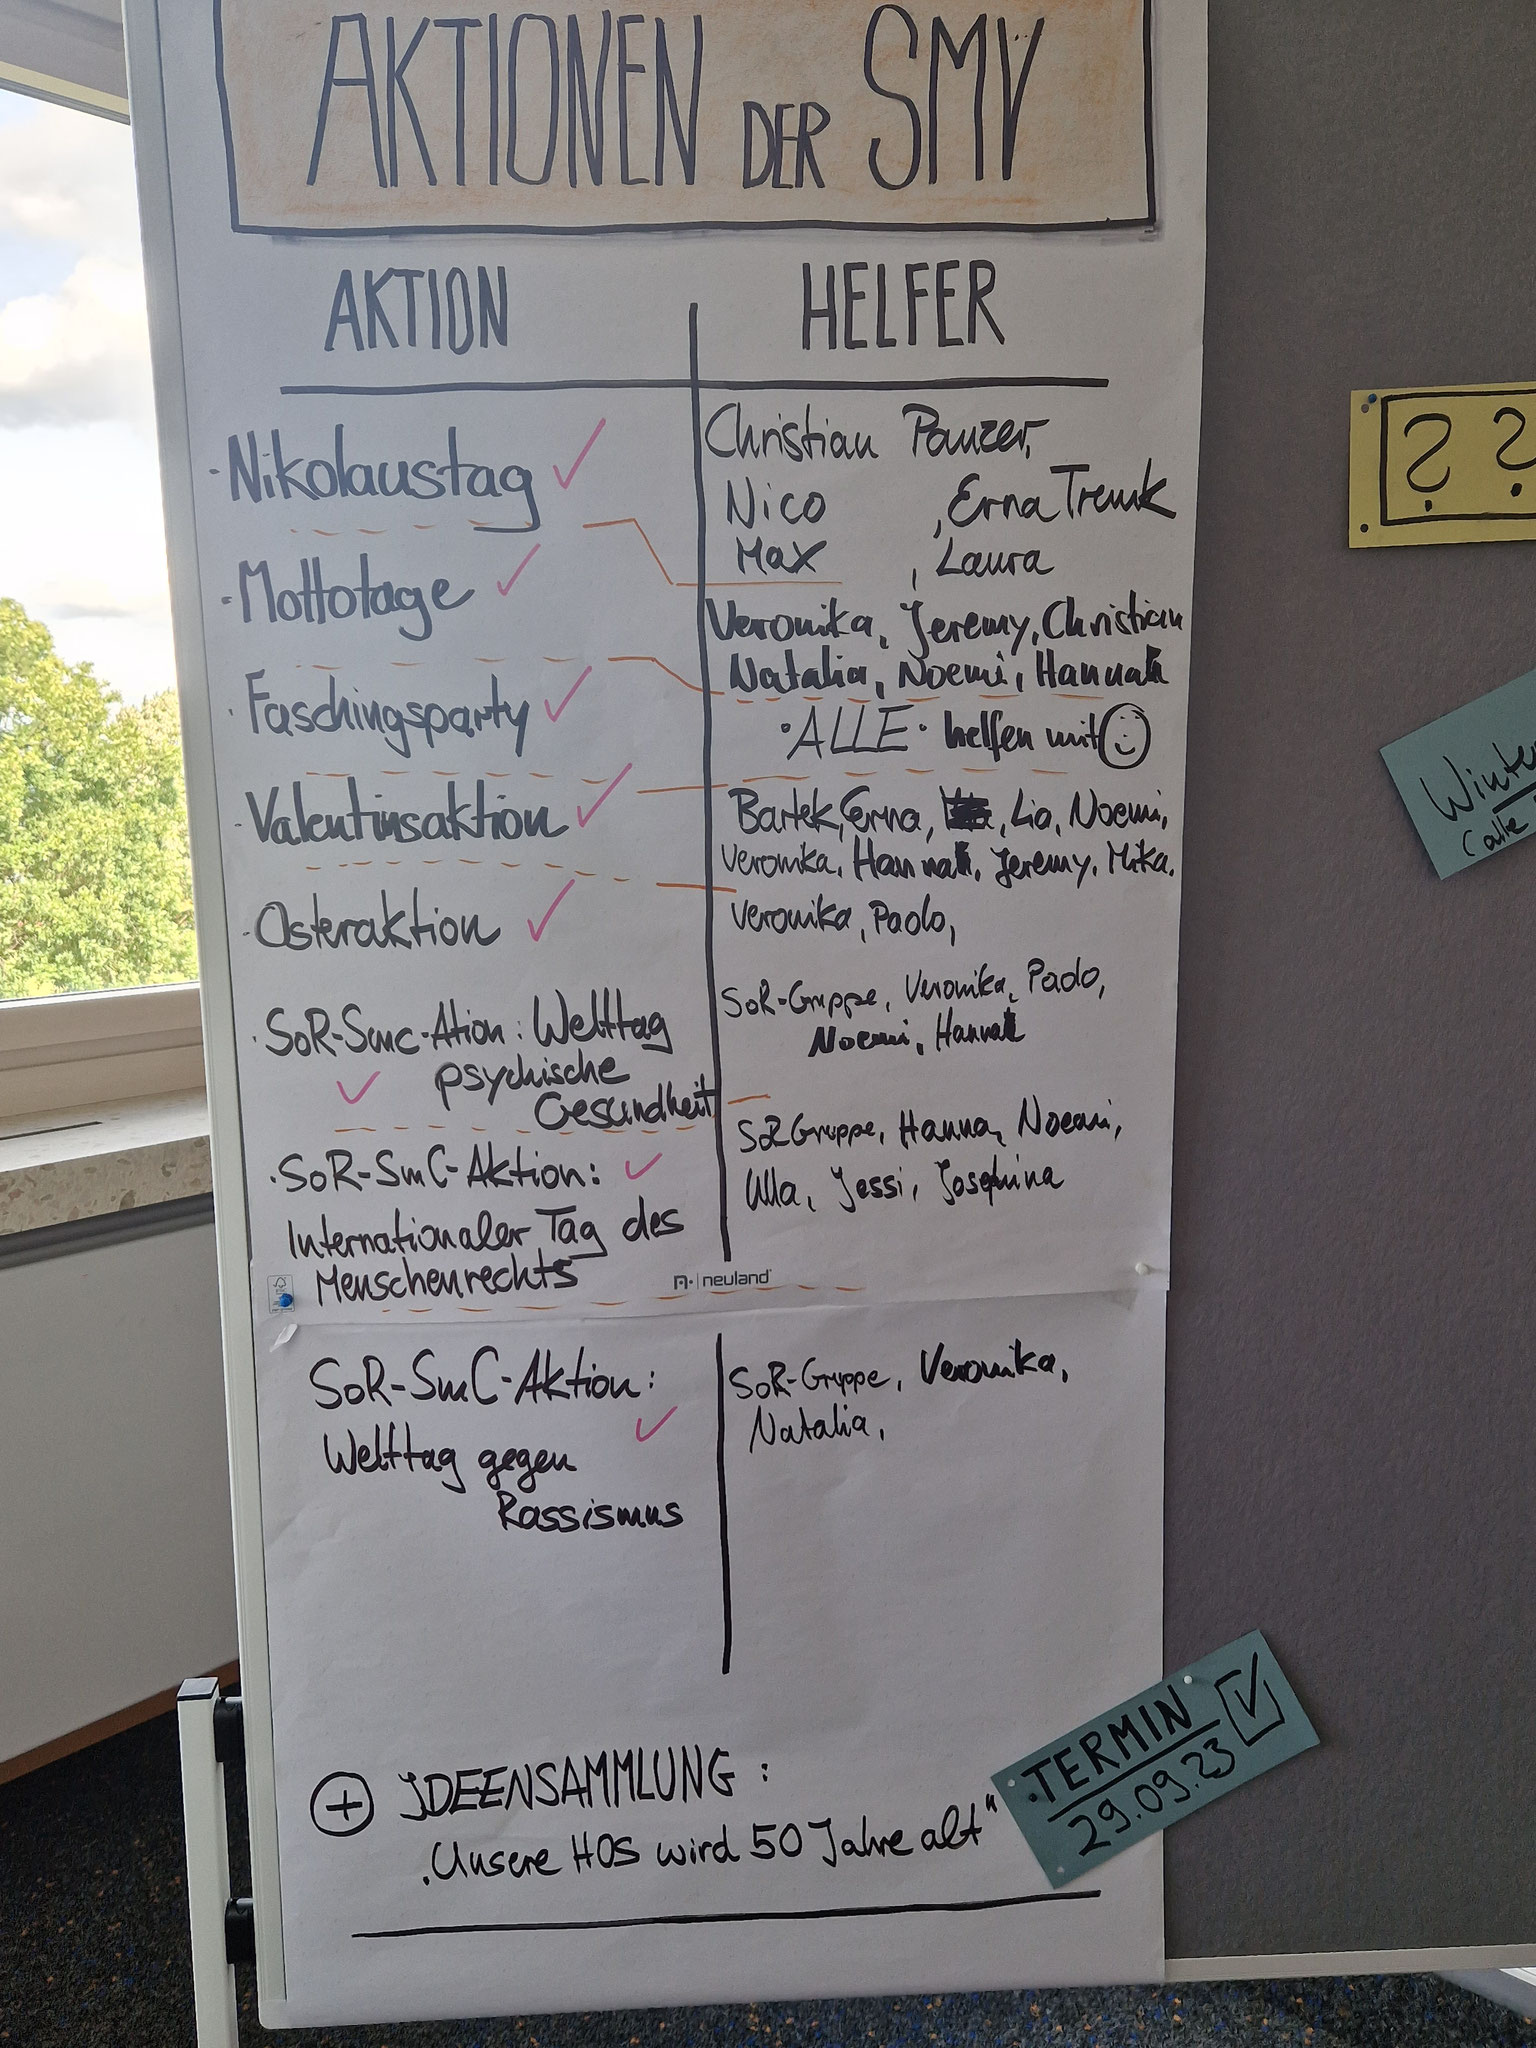 AKTIONEN DER SMV
AKTION
HELFER
· Nikolaustag ✓
Christian Panzer,
Nico , Erna Tremk
Max , Laura
· Mottotage ✓
Veronika, Jeremy, Christian
Natalia, Noemi, Hannah
· Faschingsparty ✓
·ALLE· helfen mit ☺
· Valentinsaktion ✓
Bartek, Erna, Lia, Noemi,
Veronika, Hannah, Jeremy, Mika.
· Osteraktion ✓
Veronika, Paolo,
· SoR-Smc-Ation: Welttag
psychische
✓ Gesundheit
SoR-Gruppe, Veronika, Paolo,
Noemi, Hannah
· SoR-SmC-Aktion: ✓
Internationaler Tag des
Menschenrechts
SoR Gruppe, Hanna, Noemi,
Ulla, Jessi, Josephina
neuland
SoR-SmC-Aktion:
✓
Welttag gegen
Rassismus
SoR-Gruppe, Veronika,
Natalia,
+ IDEENSAMMLUNG:
„Unsere HOS wird 50 Jahre alt"
· TERMIN ✓
29.09.23
? ?